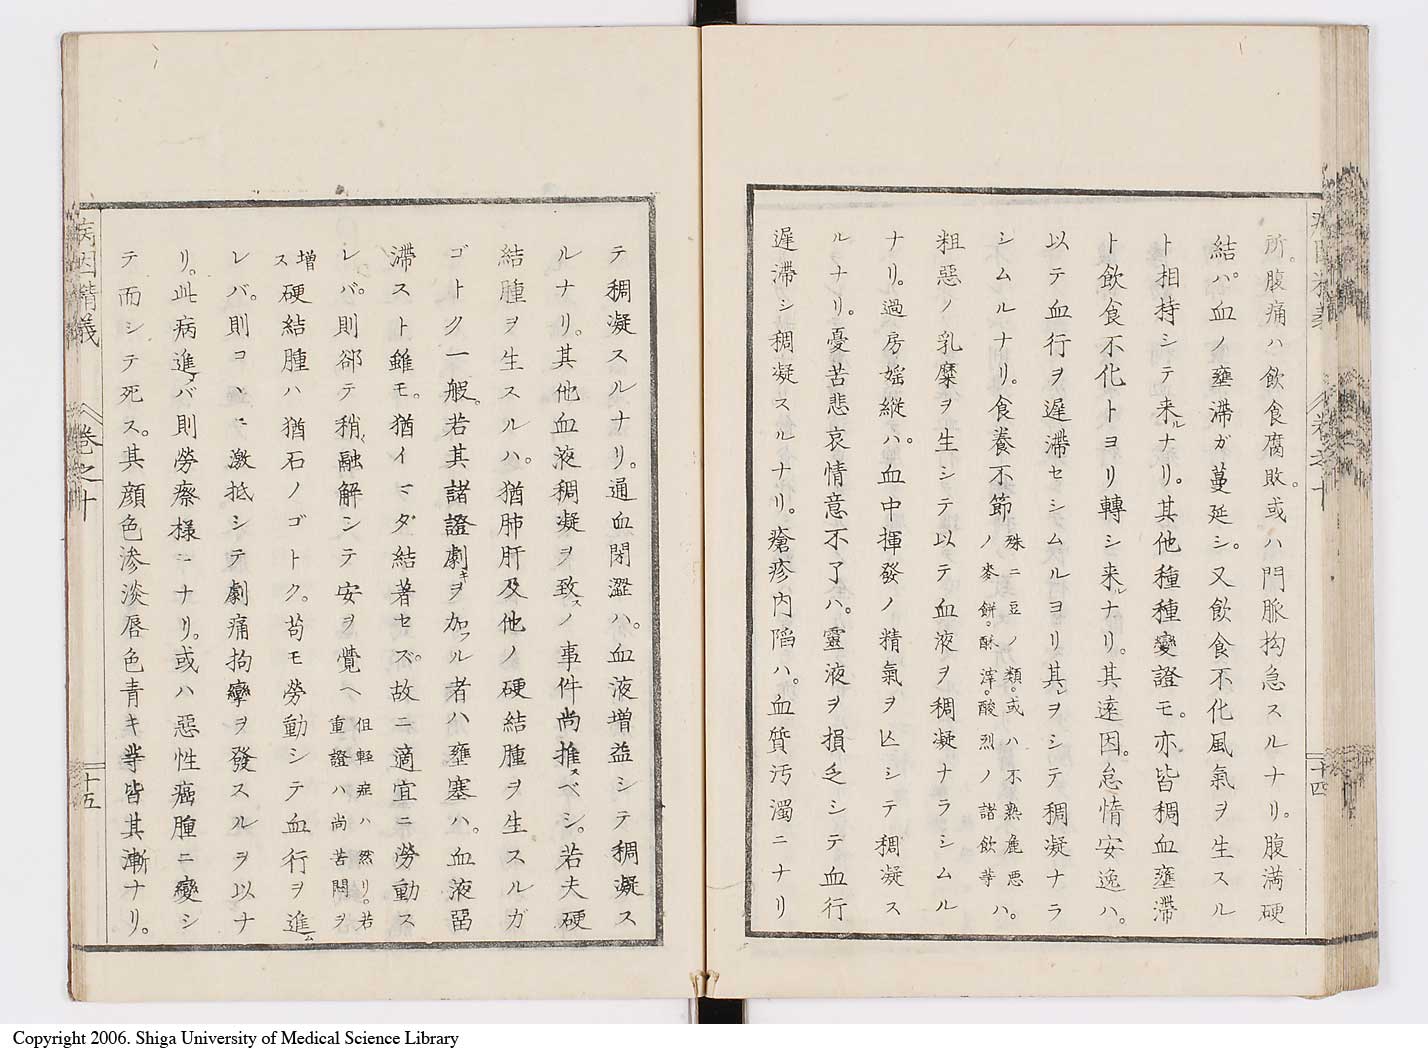 所。腹痛ハ飮食腐敗。或ハ門脈拘急スルナリ。腹滿硬
結ハ。血ノ壅滯ガ蔓延シ。又飮食不化風氣ヲ生スル
ト相持シテ来ルナリ。其他種種變證モ。亦皆稠血壅滯
ト飮食不化トヨリ轉シ来ルナリ。其遠因。怠惰安逸ハ。
以テ血行ヲ遲滯セシムルヨリ其ヲシテ稠凝ナラ
シムルナリ。食養不節殊ニ豆ノ類。或ハ不熟麁悪ノ麥餅。酥滓。酸烈ノ諸飮等ハ。
粗惡ノ乳糜ヲ生シテ以テ血液ヲ稠凝ナラシムル
ナリ。過房婬縱ハ。血中揮發ノ精氣ヲ亾シテ稠凝ス
ルナリ。憂苦悲哀情意不了ハ。靈液ヲ損乏シテ血行
遲滯シ稠凝スルナリ。瘡疹内陷ハ。血質汚濁ニナリ
十四
テ稠凝スルナリ。通血閉澀ハ。血液增益シテ稠凝ス
ルナリ。其他血液稠凝ヲ致スノ事件尚推スベシ。若夫硬
結腫ヲ生スルハ。猶肺肝及他ノ硬結腫ヲ生スルガ
ゴトク一般。若其諸證劇キヲ加フル者ハ壅塞ハ。血液留
滯スト雖モ。猶イマダ結著セズ。故ニ適宜ニ勞動ス
レバ。則郤テ稍融解シテ安ヲ覺ヘ但輕症ハ然リ。若重證ハ尚苦悶ヲ
增ス硬結腫ハ猶石ノゴトク。苟モ勞動シテ血行ヲ進ム
レバ。則コヽニ激抵シテ劇痛拘攣ヲ發スルヲ以ナ
リ。此病進メバ則勞瘵様ニナリ。或ハ惡性癌腫ニ變シ
テ而シテ死ス。其顔色滲淡唇色青キ等皆其漸ナリ。
病因精義
卷之十
十五
Copyright 2006. Shiga University of Medical Science Library